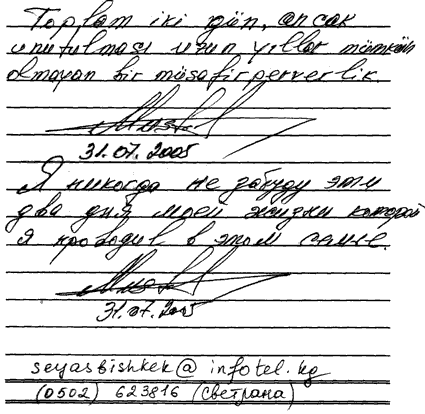 Toplam iki gün, ancak
unutulması uzun yıllar mümkün
olmayan bir müsafirperverlik.
31.07.2005
Я никогда не забуду эти
два дня моей жизни которой
я проводил в этом
31.07.2005
seyasbishkek@infotel.kg
(0502) 623816 (Светрана)